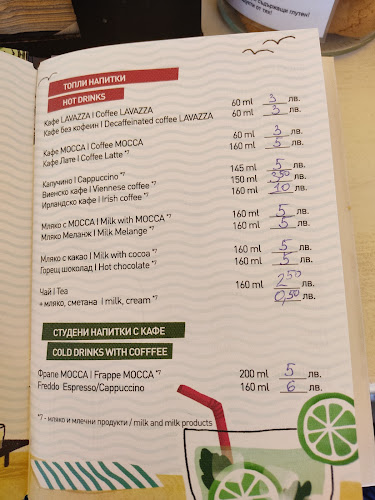 съдържащи глутен/
ТОПЛИ НАПИТКИ
HOT DRINKS
Кафе LAVAZZA I Coffee LAVAZZA 60 ml 3 лв.
Кафе без кофеин I Decaffeinated coffee LAVAZZA 60 ml 3 лв.
Кафе MOCCA I Coffee MOCCA 60 ml 3 лв.
Кафе Лате I Coffee Latte *7 160 ml 5 лв.
Капучино I Cappuccino *7 145 ml 5 лв.
Виенско кафе I Viennese coffee *7 150 ml 3,50 лв.
Ирландско кафе I Irish coffee *7 160 ml 10 лв.
Мляко с MOCCA I Milk with MOCCA *7 160 ml 5 лв.
Мляко Меланж I Milk Melange *7 160 ml 5 лв.
Мляко с какао I Milk with cocoa *7 160 ml 5 лв.
Горещ шоколад I Hot chocolate *7 160 ml 5 лв.
Чай I Tea 160 ml 2,50 лв.
+ мляко, сметана I milk, cream *7 0,50 лв.
СТУДЕНИ НАПИТКИ С КАФЕ
COLD DRINKS WITH COFFFEE
Фрапе MOCCA I Frappe MOCCA *7 200 ml 5 лв.
Freddo Espresso/Cappuccino 160 ml 6 лв.
*7 - мляко и млечни продукти / milk and milk products